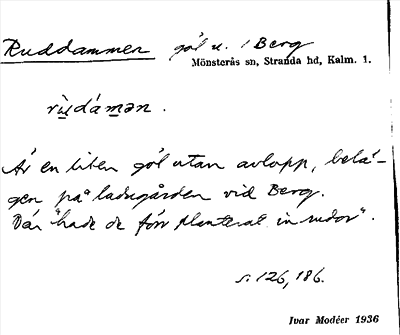 Ruddammen göl u. / Berg
Mönsterås sn, Stranda hd, Kalm. 1.
rùdámən.
Är en liten göl utan avlopp, belä-
gen på ladugården vid Berg.
Där "hade de förr planterat in rudor".
s. 126, 186.
Ivar Modéer 1936